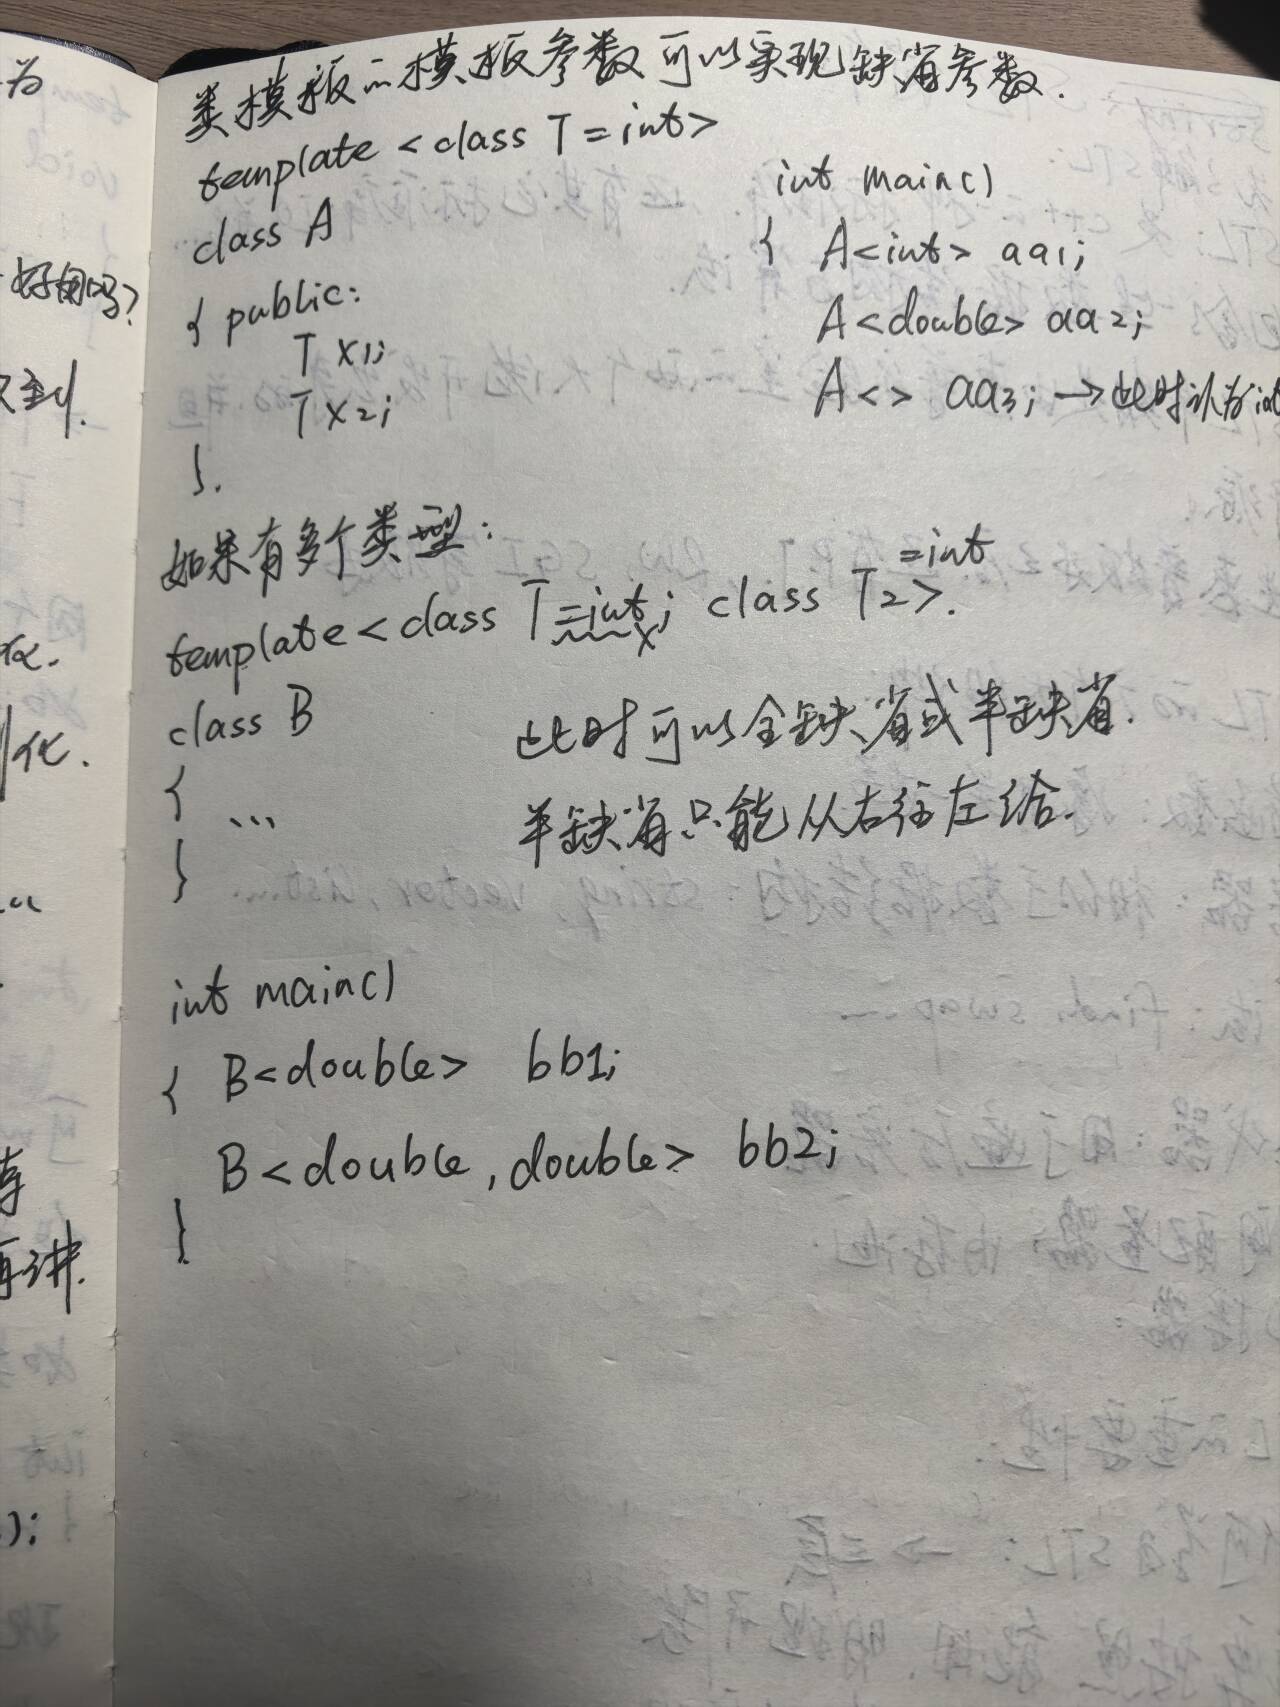 类模板の模板参数可以实现缺省参数.
template <class T=int>
class A
{ public:
T x1;
T x2;
}.
int main()
{ A<int> aa1;
A<double> aa2;
A<> aa3; →此时认为int
如果有多个类型:
=int
template<class T=int; class T2>.
x
class B
{
...
}
此时可以全缺省或半缺省.
半缺省只能从右往左给.
int main()
{ B<double> bb1;
B<double,double> bb2;
}
为
好用吗?
化.
再讲.
);